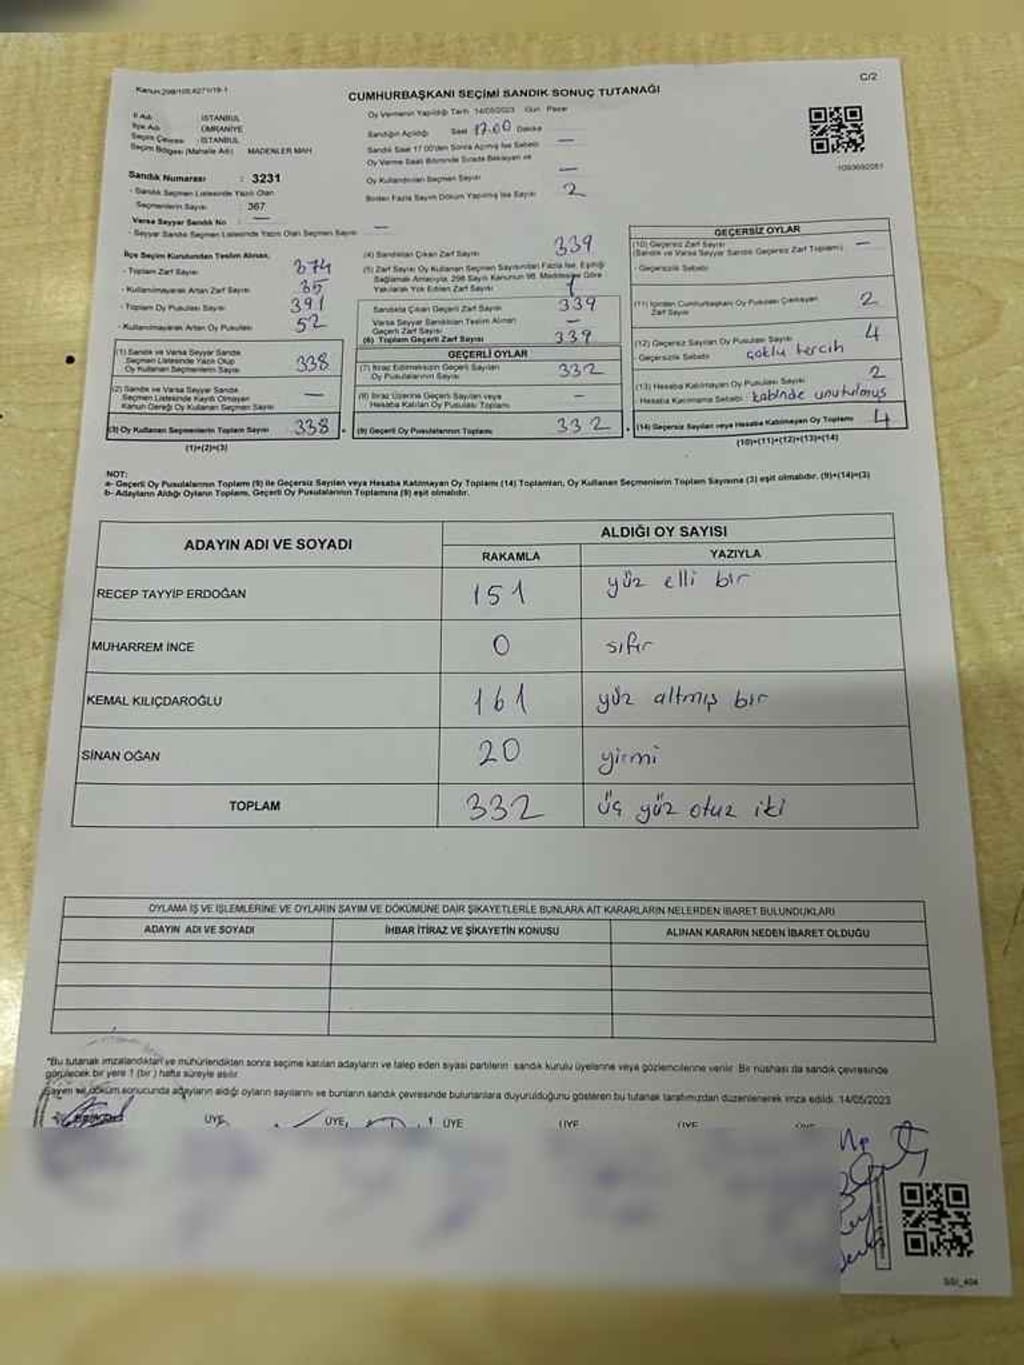 Kanun:298/105,6271/19-1
C/2
CUMHURBAŞKANI SEÇİMİ SANDIK SONUÇ TUTANAĞI
İl Adı : İSTANBUL
İlçe Adı : ÜMRANİYE
Seçim Çevresi : İSTANBUL
Seçim Bölgesi (Mahalle Adı) MADENLER MAH
Sandık Numarası : 3231
- Sandık Seçmen Listesinde Yazılı Olan
Seçmenlerin Sayısı : 367
Varsa Seyyar Sandık No : —
- Seyyar Sandık Seçmen Listesinde Yazılı Olan Seçmen Sayısı : —
Oy Vermenin Yapıldığı Tarih 14/05/2023 Gün Pazar
Sandığın Açıldığı Saat 17.00 Dakika
Sandık Saat 17.00'den Sonra Açılmış İse Sebebi —
Oy Verme Saati Bitiminde Sırada Bekleyen ve
Oy Kullandırılan Seçmen Sayısı —
Birden Fazla Sayım Döküm Yapılmış İse Sayısı 2
1093692051
İlçe Seçim Kurulundan Teslim Alınan,
- Toplam Zarf Sayısı 374
- Kullanılmayarak Artan Zarf Sayısı 35
- Toplam Oy Pusulası Sayısı 391
- Kullanılmayarak Artan Oy Pusulası 52
(1) Sandık ve Varsa Seyyar Sandık
Seçmen Listesinde Yazılı Olup
Oy Kullanan Seçmenlerin Sayısı 338
(2) Sandık ve Varsa Seyyar Sandık
Seçmen Listesinde Kayıtlı Olmayan
Kanun Gereği Oy Kullanan Seçmen Sayısı —
(3) Oy Kullanan Seçmenlerin Toplam Sayısı 338
(1)+(2)=(3)
(4) Sandıktan Çıkan Zarf Sayısı 339
(5) Zarf Sayısı Oy Kullanan Seçmen Sayısından Fazla İse, Eşitliği
Sağlamak Amacıyla, 298 Sayılı Kanunun 98. Maddesine Göre
Yakılarak Yok Edilen Zarf Sayısı 1
Sandıkta Çıkan Geçerli Zarf Sayısı 339
Varsa Seyyar Sandıktan Teslim Alınan
Geçerli Zarf Sayısı —
(6) Toplam Geçerli Zarf Sayısı 339
GEÇERLİ OYLAR
(7) İtiraz Edilmeksizin Geçerli Sayılan
Oy Pusulalarının Sayısı 332
(8) İtiraz Üzerine Geçerli Sayılan veya
Hesaba Katılan Oy Pusulası Toplamı —
(9) Geçerli Oy Pusulalarının Toplamı 332
GEÇERSİZ OYLAR
(10) Geçersiz Zarf Sayısı —
(Sandık ve Varsa Seyyar Sandık Geçersiz Zarf Toplamı)
- Geçersizlik Sebebi
(11) İçinden Cumhurbaşkanı Oy Pusulası Çıkmayan
Zarf Sayısı 2
(12) Geçersiz Sayılan Oy Pusulası Sayısı 4
- Geçersizlik Sebebi : çoklu tercih
(13) Hesaba Katılmayan Oy Pusulası Sayısı 2
- Hesaba Katılmama Sebebi : kabinde unutulmuş
(14) Geçersiz Sayılan veya Hesaba Katılmayan Oy Toplamı 4
(10)+(11)+(12)+(13)=(14)
NOT:
a- Geçerli Oy Pusulalarının Toplamı (9) ile Geçersiz Sayılan veya Hesaba Katılmayan Oy Toplamı (14) Toplamları, Oy Kullanan Seçmenlerin Toplam Sayısına (3) eşit olmalıdır. (9)+(14)=(3)
b- Adayların Aldığı Oyların Toplamı, Geçerli Oy Pusulalarının Toplamına (9) eşit olmalıdır.
ADAYIN ADI VE SOYADI
ALDIĞI OY SAYISI
RAKAMLA YAZIYLA
RECEP TAYYİP ERDOĞAN 151 yüz elli bir
MUHARREM İNCE 0 sıfır
KEMAL KILIÇDAROĞLU 161 yüz altmış bir
SİNAN OĞAN 20 yirmi
TOPLAM 332 üç yüz otuz iki
OYLAMA İŞ VE İŞLEMLERİNE VE OYLARIN SAYIM VE DÖKÜMÜNE DAİR ŞİKAYETLERLE BUNLARA AİT KARARLARIN NELERDEN İBARET BULUNDUKLARI
ADAYIN ADI VE SOYADI İHBAR İTİRAZ VE ŞİKAYETİN KONUSU ALINAN KARARIN NEDEN İBARET OLDUĞU
*Bu tutanak imzalandıktan ve mühürlendikten sonra seçime katılan adayların ve talep eden siyasi partilerin sandık kurulu üyelerine veya gözlemcilerine verilir. Bir nüshası da sandık çevresinde
görülecek bir yere 1 (bir) hafta süreyle asılır.
Sayım ve döküm sonucunda adayların aldığı oyların sayılarını ve bunların sandık çevresinde bulunanlara duyurulduğunu gösteren bu tutanak tarafımızdan düzenlenerek imza edildi. 14/05/2023
ÜYE ÜYE ÜYE ÜYE ÜYE
SSİ_404